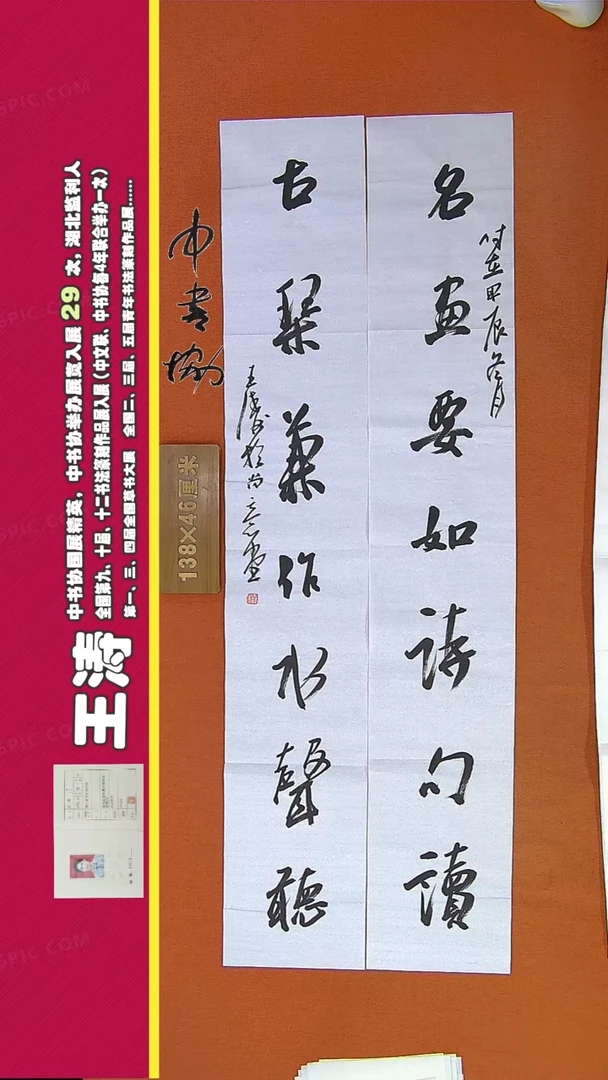 名画要如詩句讀
時在甲辰冬月
古琴兼作水聲聽
王涛於尚意堂
中书协
138×46厘米
王涛
中书协国展精英，中书协举办展赛入展 29 次，湖北监利人
全国第九、十届、十二书法篆刻作品展入展（中文联、中书协每4年联合举办一次）
第一、三、四届全国草书大展 全国二、三届、五届青年书法篆刻作品展……